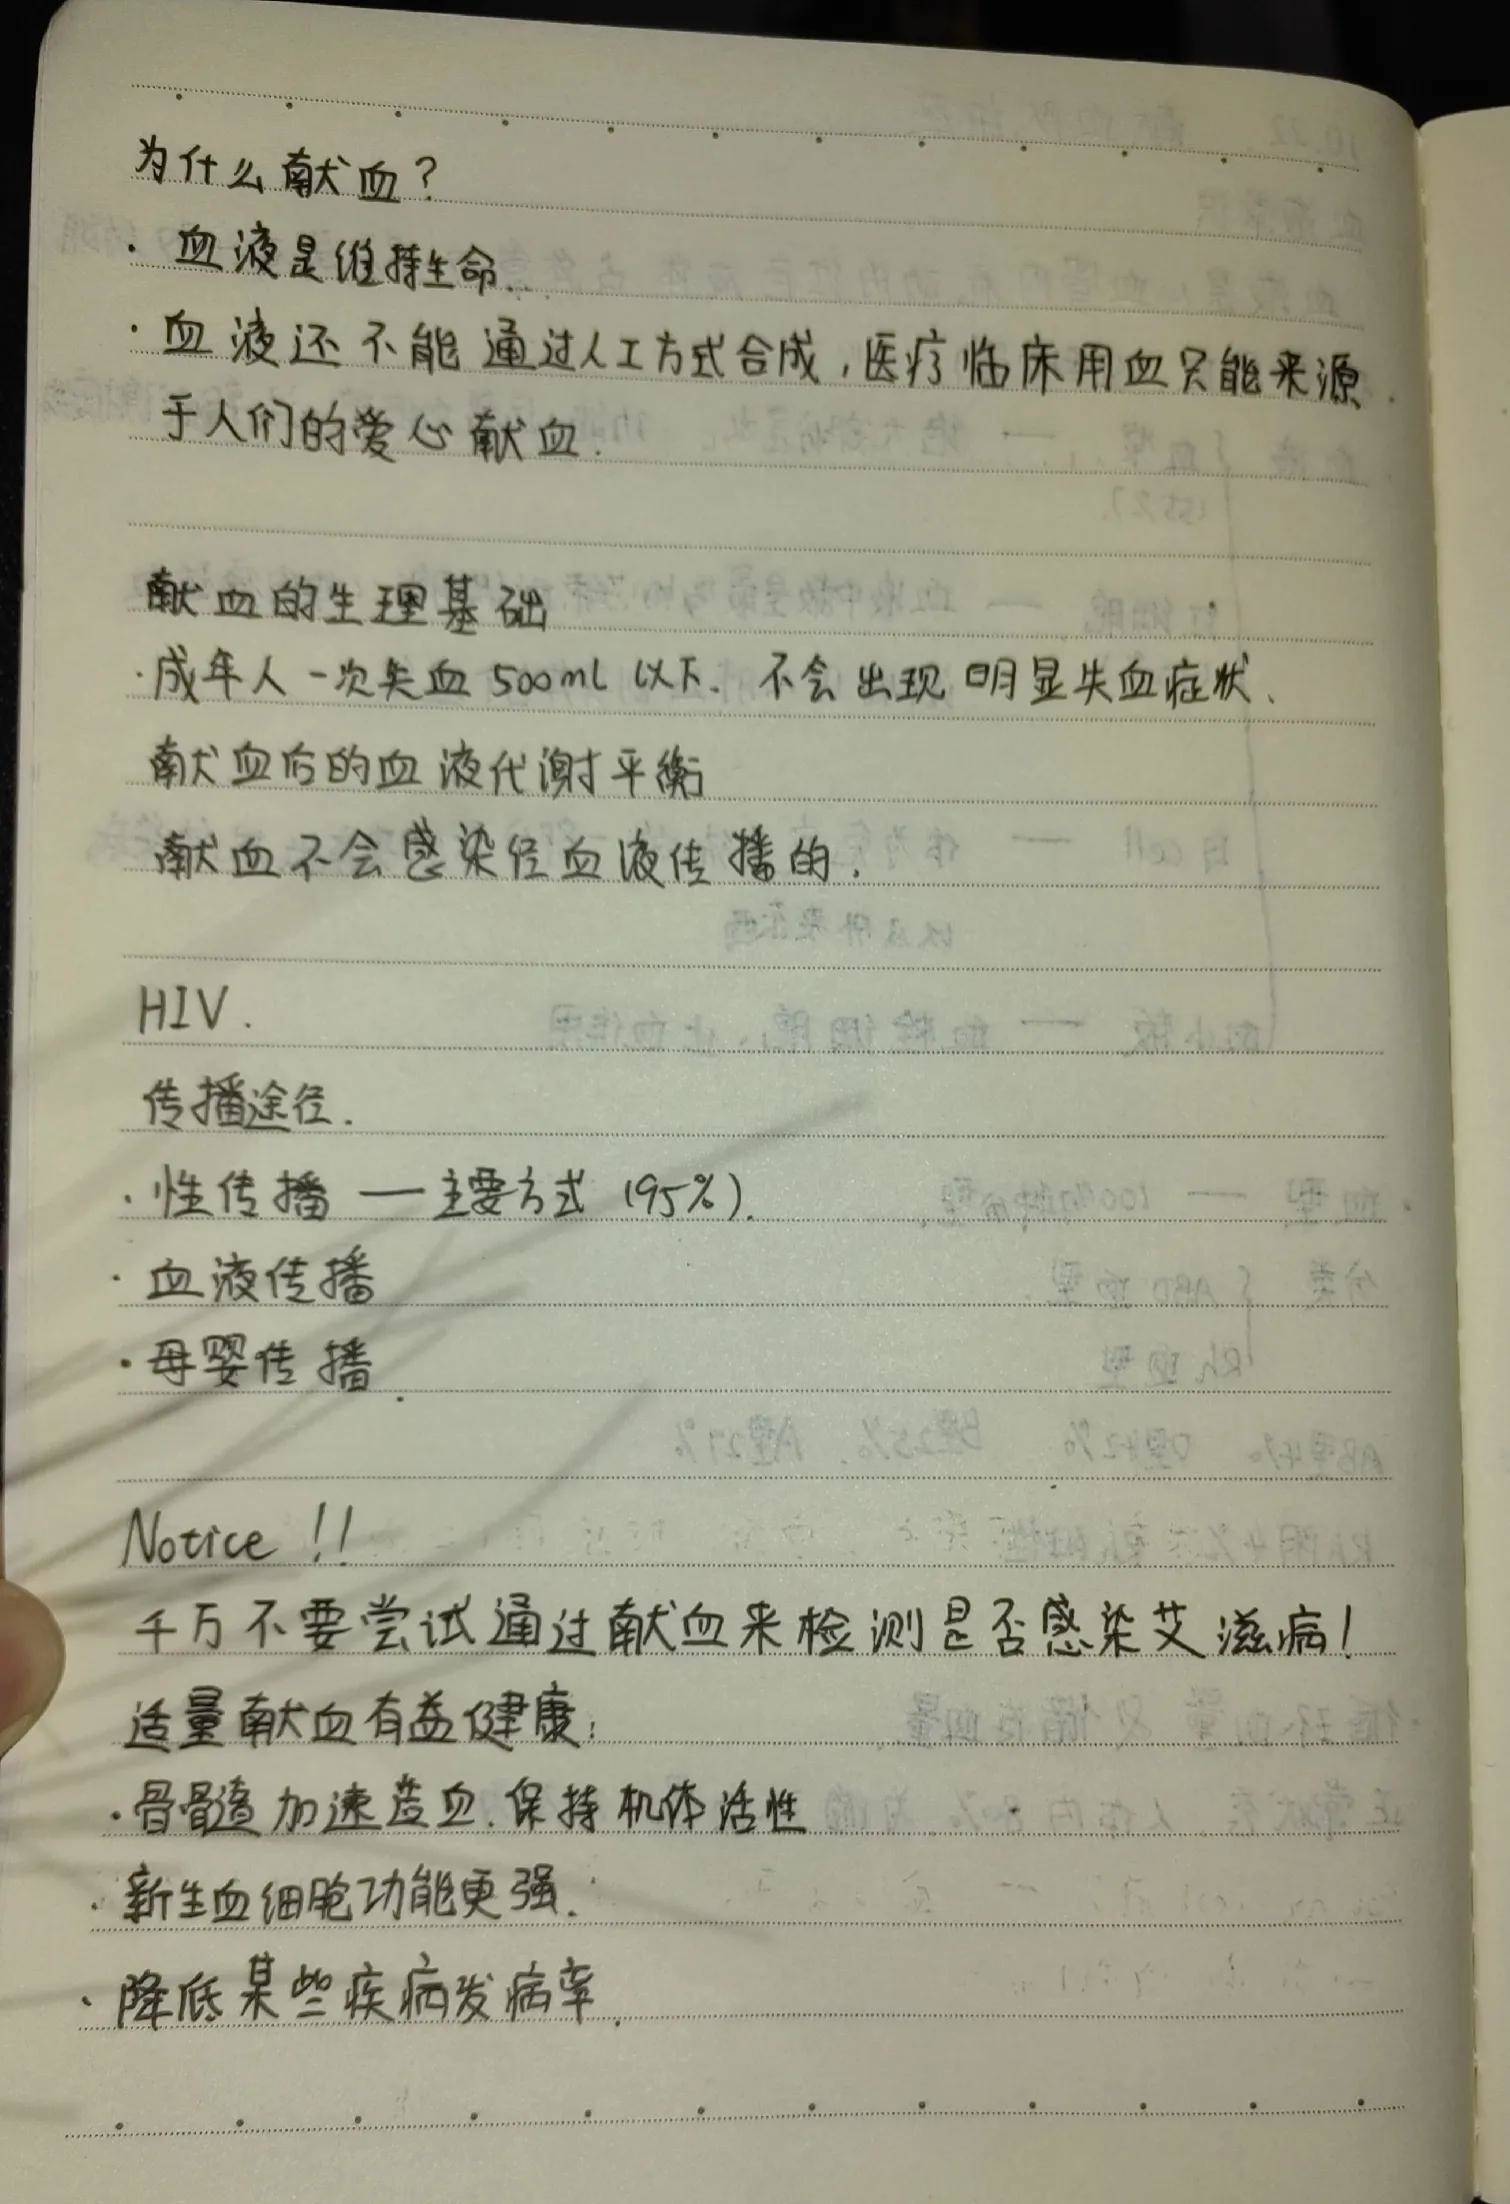 为什么献血？
· 血液是维持生命.
· 血液还不能通过人工方式合成，医疗临床用血只能来源
于人们的爱心献血.
献血的生理基础
· 成年人一次失血 500mL 以下. 不会出现明显失血症状、
献血后的血液代谢平衡
献血不会感染径血液传播的.
HIV.
传播途径.
· 性传播 — 主要方式 (95%).
· 血液传播
· 母婴传播.
Notice !!
千万不要尝试通过献血来检测是否感染艾滋病!
适量献血有益健康:
· 骨髓加速造血. 保持机体活性
· 新生血细胞功能更强.
· 降低某些疾病发病率.